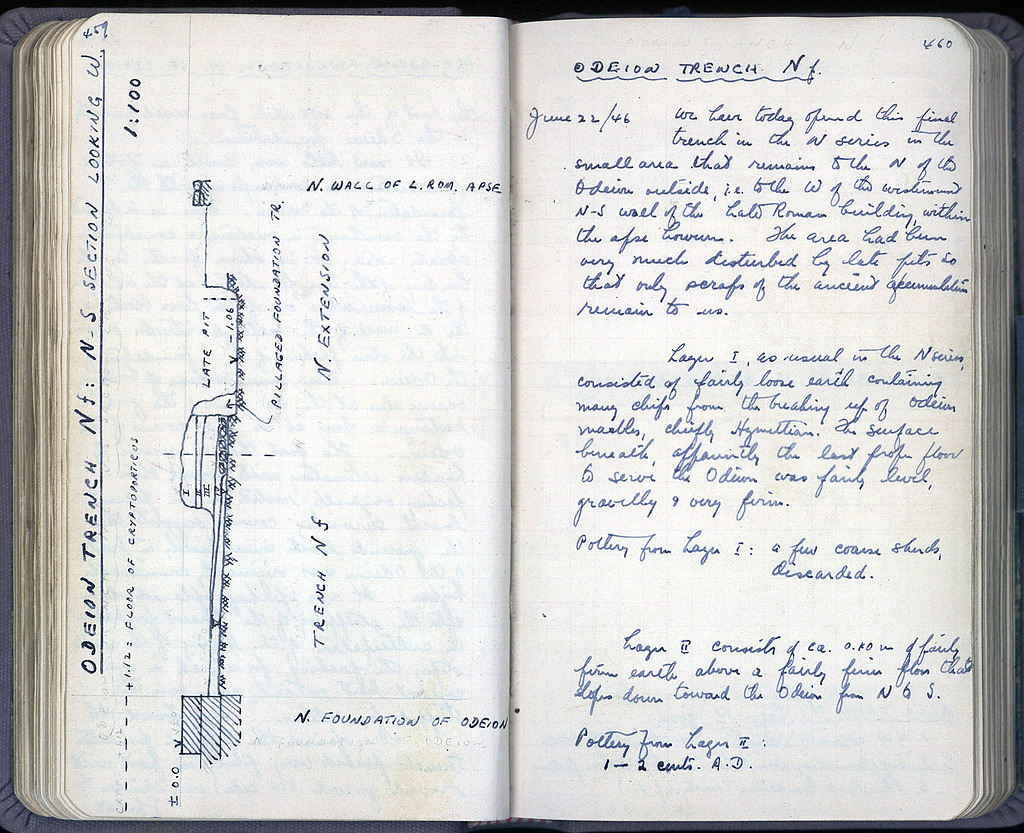 459
ODEION TRENCH Nf: N-S SECTION LOOKING W.
1:100
N. WALL OF L. ROM. APSE
PILLAGED FOUNDATION TR.
N. EXTENSION
LATE PIT
-1.06
I
II
III
IV
V
TRENCH Nf
+1.12 = FLOOR OF CRYPTOPORTICUS
N. FOUNDATION OF ODEION
± 0.0
460
ODEION TRENCH Nf.
June 22/46 We have today opened this final
trench in the N series in the
small area that remains to the N of the
Odeion outside, i.e. to the W of the westernmost
N-S wall of the Late Roman building, within
the apse however. The area had been
very much disturbed by late pits so
that only scraps of the ancient accumulation
remain to us.
Layer I, as usual in the N series,
consisted of fairly loose earth containing
many chips from the breaking up of Odeion
marbles, chiefly Hymettian. The surface
beneath, apparently the last proper floor
to serve the Odeion was fairly level,
gravelly & very firm.
Pottery from Layer I: a few coarse sherds,
discarded.
Layer II consists of ca. 0.10 m of fairly
firm earth above a fairly firm floor that
slopes down toward the Odeion from N to S.
Pottery from Layer II:
1-2 cents. A.D.